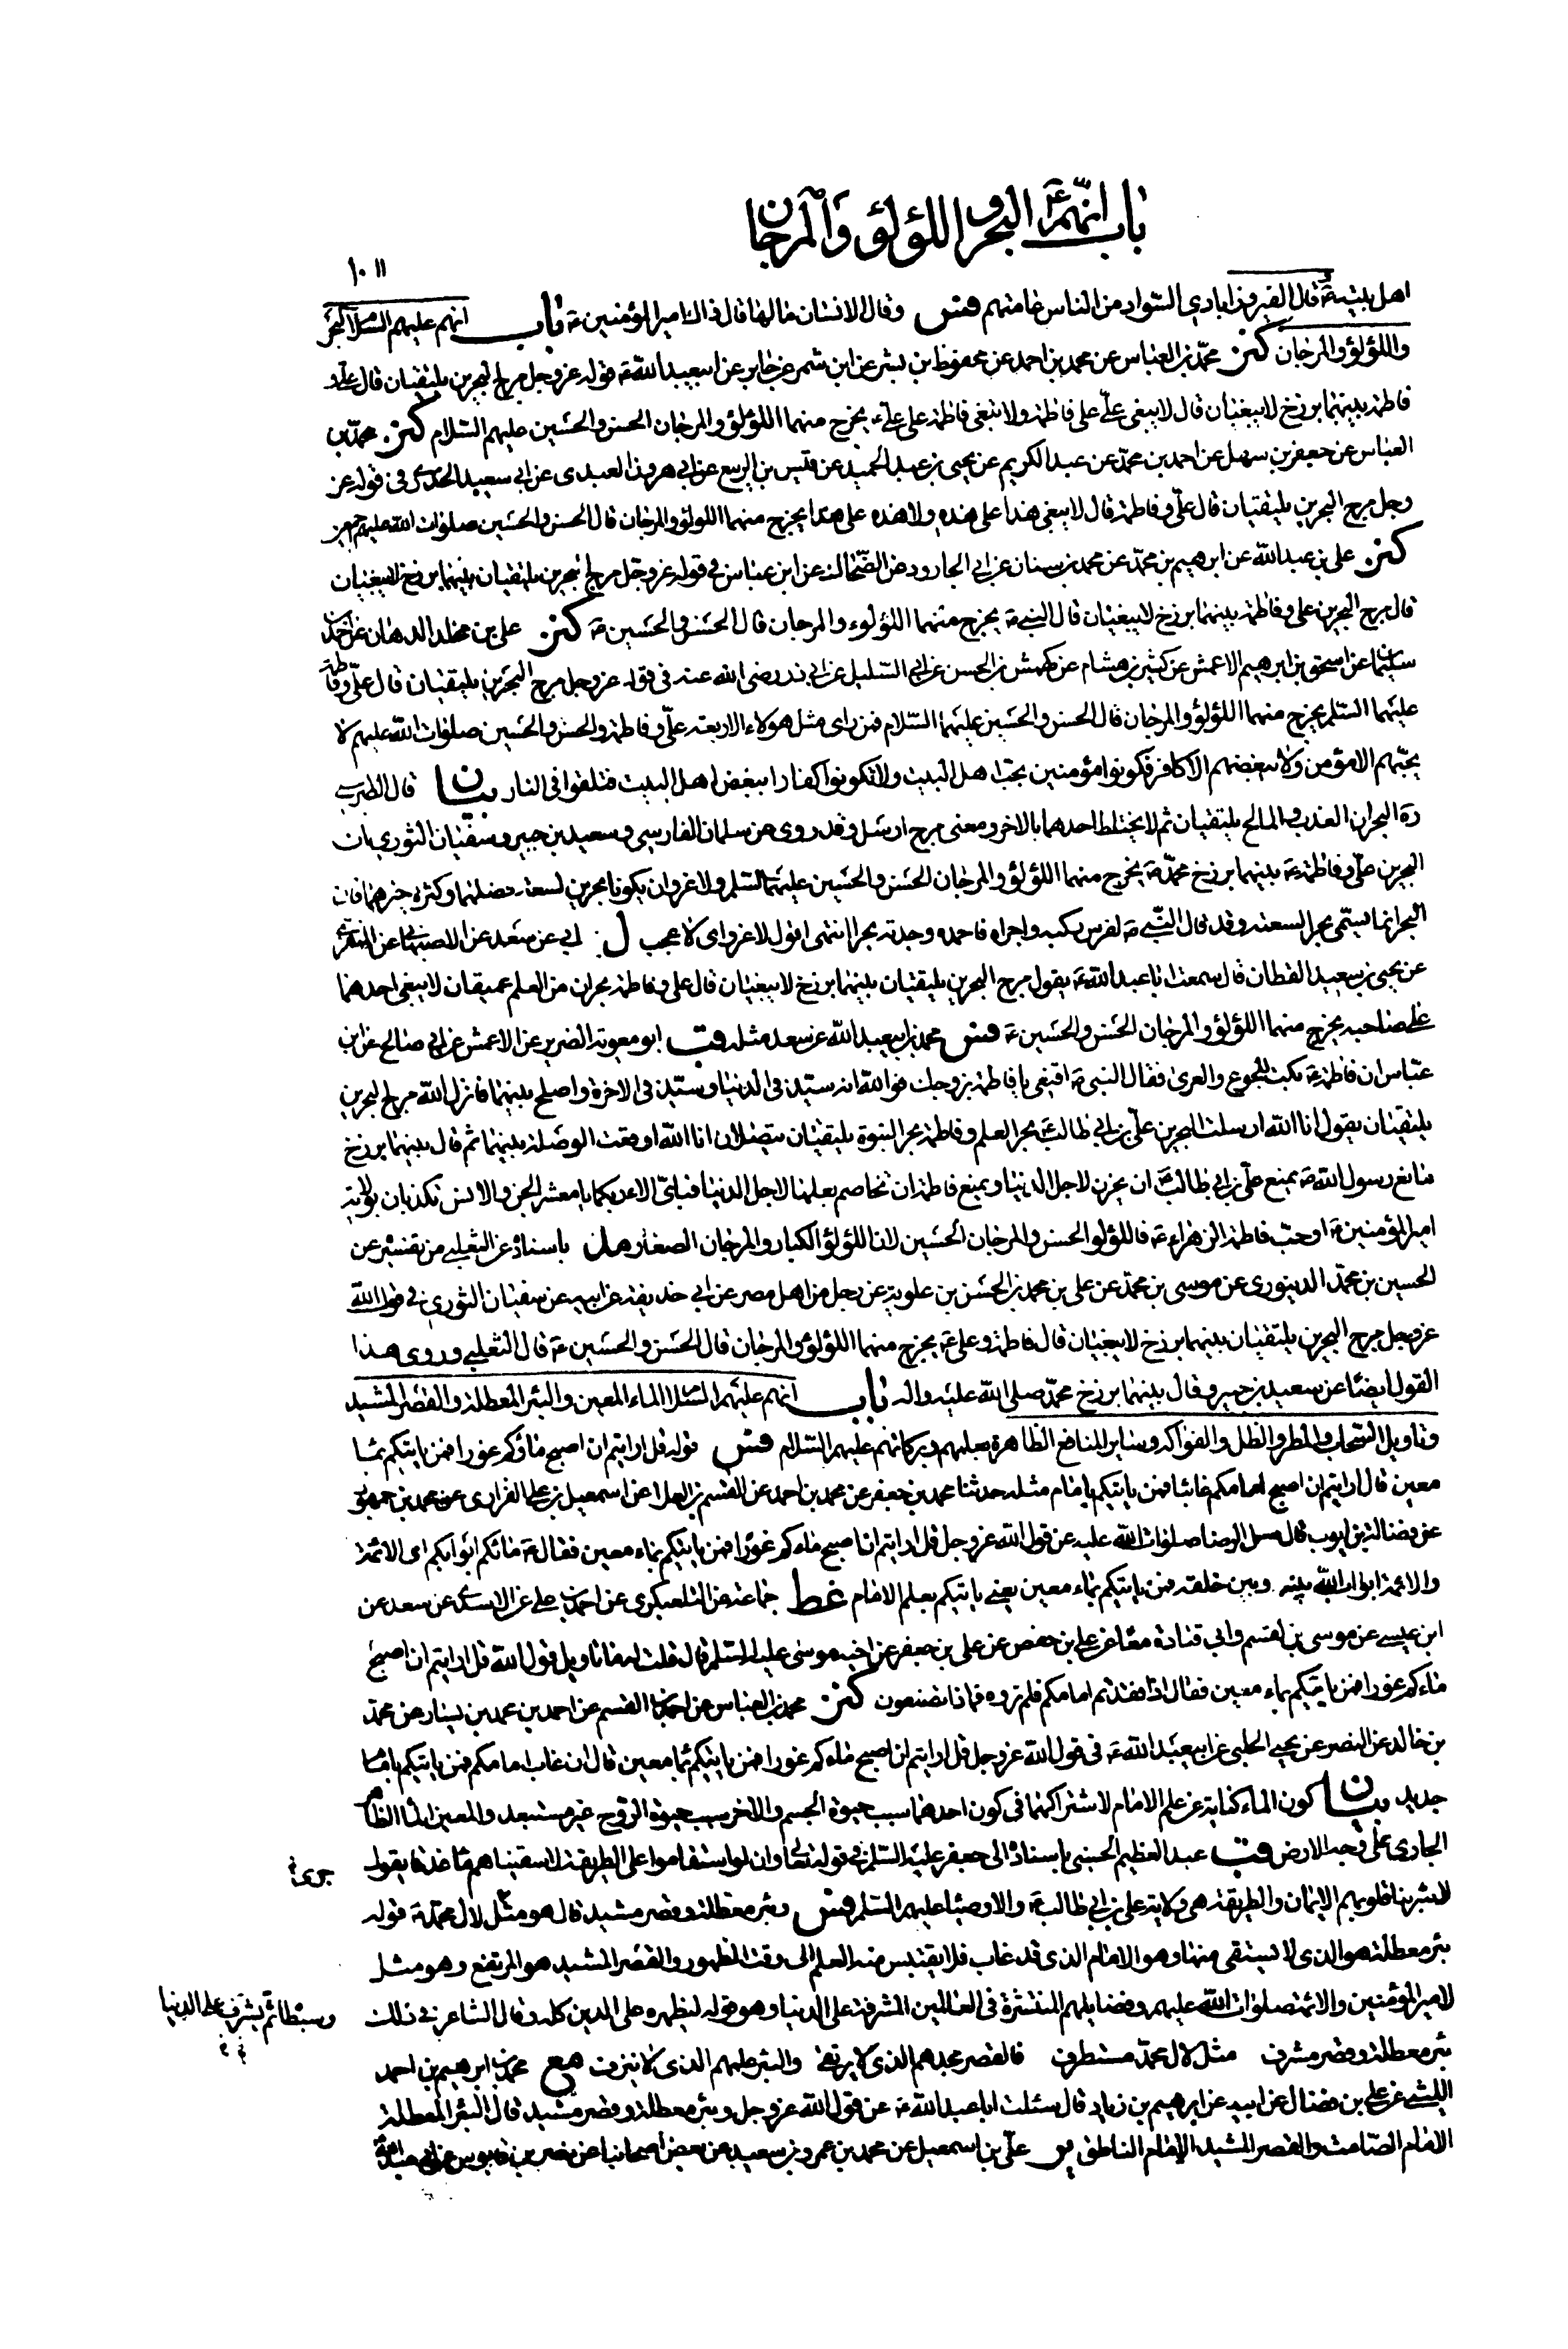 باب انهم ع البحر و اللؤلؤ والمرجان
١٠ ١١
اهل بيته ع قال الفيروزابادي السواد من الناس عامتهم فس وقال الانسان مالها قال ذاك امير المؤمنين ع باب انهم عليهم السلم البحر
واللؤلؤ والمرجان كنز محمد بن العباس عن محمد بن احمد عن محفوظ بن بشر عن ابن شمر عن جابر عن ابيعبد الله ع قوله عز وجل مرج البحرين يلتقيان قال علي و
فاطمة بينهما برزخ لا يبغيان قال لا يبغي علي على فاطمة ولا تبغي فاطمة على علي ع يخرج منهما اللؤلؤ والمرجان الحسن والحسين عليهم السلام كنز محمد بن
العباس عن جعفر بن سهل عن احمد بن محمد عن عبد الكريم عن يحيى بن عبد الحميد عن قيس بن الربيع عن ابي هرون العبدى عن ابي سعيد الخدرى فى قوله عز
وجل مرج البحرين يلتقيان قال علي وفاطمة قال لا يبغي هذا على هذه ولا هذه على هذا يخرج منهما اللولؤ والمرجان قال الحسن والحسين صلوات الله عليهم اجمعين
كنز علي بن عبد الله عن ابرهيم بن محمد عن محمد بن سنان عن ابي الجارود عن الضحاك عن ابن عباس في قوله عز وجل مرج البحرين يلتقيان بينهما برزخ لا يبغيان
قال مرج البحرين علي وفاطمة بينهما برزخ لا يبغيان قال النبي ص يخرج منهما اللؤلوء والمرجان قال الحسن والحسين ع كنز علي بن مخلد الدهان عن احمد بن
سليمان عن اسحق بن ابرهيم الاعمش عن كثير بن هشام عن كهمش بن الحسن عن ابي السليل عن ابي ذر رضى الله عنه فى قوله عز وجل مرج البحرين يلتقيان قال علي وفاطمة
عليهما السلم يخرج منهما اللؤلؤ والمرجان قال الحسن والحسين عليهما السلام فمن راى مثل هؤلاء الاربعة علي وفاطمة والحسن والحسين صلوات الله عليهم لا
يحبهم الا مؤمن ولا يبغضهم الا كافر فكونوا مؤمنين بحب اهل البيت ولا تكونوا كفارا ببغض اهل البيت فتلقوا فى النار بيان قال الطبرسي
ره البحران العذب والمالح يلتقيان ثم لا يختلط احدهما بالاخر ومعنى مرج ارسل وقد روى عن سلمان الفارسي وسعيد بن جبير وسفيان الثوري بان
البحرين علي وفاطمة ع بينهما برزخ محمد ص يخرج منهما اللؤلؤ والمرجان الحسن والحسين عليهما السلم ولا غرو ان يكونا بحرين لسعة فضلهما وكثرة خيرهما فان
البحر انما يسمى بحرا لسعته وقد قال النبي ص لفرس ركبه واجراه فاحمده وجدته بحرا انتهى اقول لا غرو اى لا عجب ل ابي عن سعد عن الاصبهاني عن المنقري
عن يحيى بن سعيد القطان قال سمعت ابا عبد الله ع يقول مرج البحرين يلتقيان بينهما برزخ لا يبغيان قال علي وفاطمة بحران من العلم عميقان لا يبغي احدهما
على صاحبه يخرج منهما اللؤلؤ والمرجان الحسن والحسين ع فس محمد بن ابيعبد الله عن سعد مثله قب ابو معوية الضرير عن الاعمش عن ابي صالح عن ابن
عباس ان فاطمة ع بكت للجوع والعرى فقال النبي ص اقنعي يا فاطمة بزوجك فوالله انه سيد فى الدنيا وسيد فى الاخرة واصلح بينهما فانزل الله مرج البحرين
يلتقيان يقول انا الله ارسلت البحرين علي بن ابي طالب ع بحر العلم وفاطمة بحر النبوة يلتقيان يتصلان انا الله اوقعت الوصلة بينهما ثم قال بينهما برزخ
مانع رسول الله ص يمنع علي بن ابي طالب ع ان يحزن لاجل الدنيا ويمنع فاطمة ان تخاصم بعلها لاجل الدنيا فباي الاء ربكما يا معشر الجن والانس تكذبان بولاية
امير المؤمنين ع او حب فاطمة الزهراء ع فاللؤلؤ الحسن والمرجان الحسين لان اللؤلؤ الكبار والمرجان الصغار مد باسناده عن الثعلبي من تفسيره عن
الحسين بن محمد الدينورى عن موسى بن محمد عن علي بن محمد بن الحسن بن علوية عن رجل من اهل مصر عن ابي حذيفة عن ابيه عن سفيان الثوري فى قول الله
عز وجل مرج البحرين يلتقيان بينهما برزخ لا يبغيان قال فاطمة وعلي ع يخرج منهما اللؤلؤ والمرجان قال الحسن والحسين ع قال الثعلبي وروى هذا
القول ايضا عن سعيد بن جبير وقال بينهما برزخ محمد صلى الله عليه واله باب انهم عليهم السلم الماء المعين والبئر المعطلة والقصر المشيد
وتاويل السحاب والمطر والظل والفواكه وساير المنافع الظاهرة بعلمهم وبركاتهم عليهم السلام فس قوله قل ارايتم ان اصبح ماؤكم غورا فمن ياتيكم بماء
معين قال ارايتم ان اصبح امامكم غائبا فمن ياتيكم بامام مثله حدثنا محمد بن جعفر عن محمد بن احمد عن القسم بن العلا عن اسمعيل بن علي الفزارى عن محمد بن جمهور
عن فضالة بن ايوب قال سئل الرضا صلوات الله عليه عن قول الله عز وجل قل ارايتم ان اصبح ماءكم غورا فمن ياتيكم بماء معين فقال ع مائكم ابوابكم اى الائمة
والائمة ابواب الله بينه وبين خلقه فمن ياتيكم بماء معين يعني ياتيكم بعلم الامام غط جماعة عن التلعكبرى عن احمد بن علي عن الاسدى عن سعد عن
ابن عيسى عن موسى بن القسم وابي قتادة معا عن علي بن حفص عن علي بن جعفر عن اخيه موسى عليه السلم قال قلت له ما تاويل قول الله قل ارايتم ان اصبح
ماءكم غورا فمن ياتيكم بماء معين فقال اذا فقدتم امامكم فلم تروه فماذا تصنعون كنز محمد بن العباس عن احمد بن القسم عن احمد بن محمد بن يسار عن محمد
بن خالد عن النضر عن يحيى الحلبى عن ابيعبد الله ع فى قول الله عز وجل قل ارايتم ان اصبح ماءكم غورا فمن ياتيكم بماء معين قال ان غاب امامكم فمن ياتيكم بامام
جديد بيان كون الماء كناية عن علم الامام لاشتراكهما فى كون احدهما سبب حيوة الجسم والاخر سبب حيوة الروح غير مستبعد والمعين الماء الظاهر
الجارى على وجه الارض قب عبد العظيم الحسنى باسناده الى جعفر عليه السلم فى قوله تعالى وان لو استقاموا على الطريقة لاسقيناهم ماء غدقا يقول
لاشربنا قلوبهم الايمان والطريقة هي ولاية علي بن ابي طالب ع والاوصياء عليهم السلم فس وبئر معطلة وقصر مشيد قال هو مثل لال محمد ص قوله
بئر معطلة هو الذى لا يستقى منها وهو الامام الذى قد غاب فلا يقتبس منه العلم الى وقت الظهور والقصر المشيد هو المرتفع وهو مثل
لامير المؤمنين والائمة صلوات الله عليهم وفضايلهم المنتشرة فى العالمين المشرفة على الدنيا وهو قوله ليظهره على الدين كله وقال الشاعر فى ذلك
وسبطائم يشرف على الدنيا
بئر معطلة وقصر مشرف مثل لال محمد مستطرف فالقصر مجدهم الذى لا يرتقى والبئر علمهم الذى لا ينزف مع محمد بن ابرهيم بن احمد
الليثي عن علي بن فضال عن ابيه عن ابرهيم بن زياد قال سئلت ابا عبد الله ع عن قول الله عز وجل وبئر معطلة وقصر مشيد قال البئر المعطلة
الامام الصامت والقصر المشيد الامام الناطق ير علي بن اسمعيل عن محمد بن عمرو بن سعيد عن بعض اصحابنا عن نصر بن قابوس عن ابي عبد الله